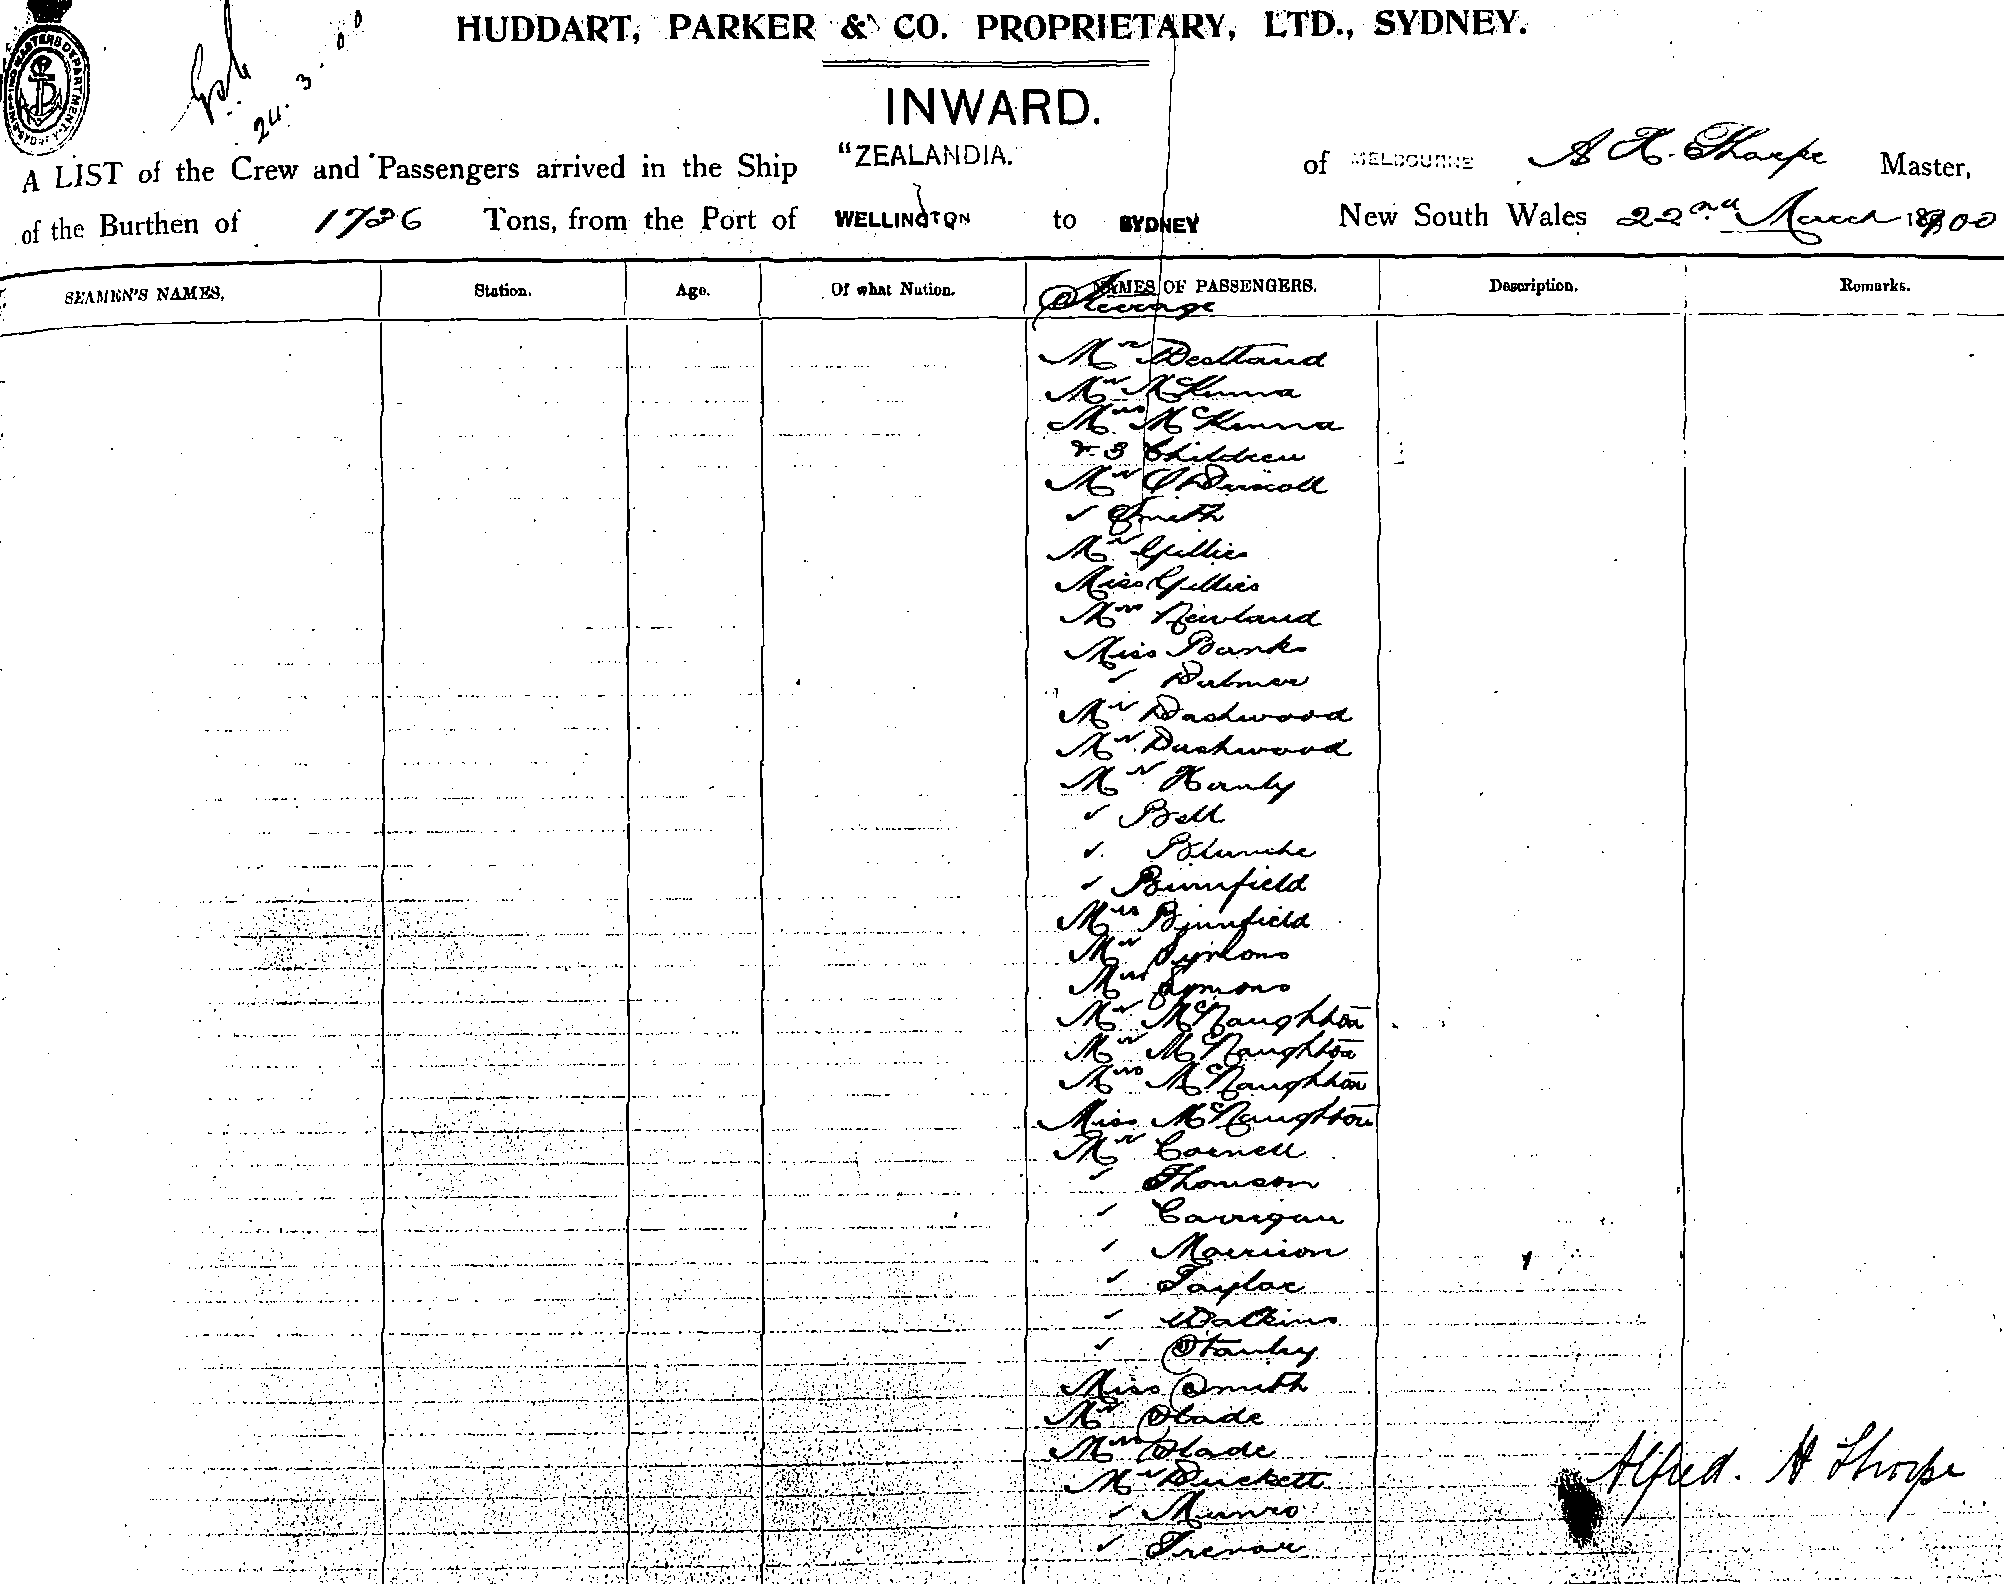 HUDDART, PARKER & CO. PROPRIETARY, LTD., SYDNEY.
24.3.00
INWARD.
A LIST of the Crew and Passengers arrived in the Ship "ZEALANDIA. of MELBOURNE A H. Thorpe Master,
of the Burthen of 1786 Tons, from the Port of WELLINGTON to SYDNEY New South Wales 22nd March 1900
SEAMEN'S NAMES, Station. Age. Of what Nation. NAMES OF PASSENGERS. Description. Remarks.
Steerage
Mr Westland
Mr McKenna
Mrs McKenna
& 3 Children
Mr O'Driscoll
" Smith
Mr Gillies
Miss Gillies
Mrs Newland
Miss Banks
" Palmer
Mr Dashwood
Mr Dashwood
Mr Hanly
" Bell
" Blanche
" Binnfield
Mrs Binnfield
Mr Symons
Mrs Symons
Mr McNaughton
Mr McNaughton
Mrs McNaughton
Miss McNaughton
Mr Cornell
" Thomson
" Carrigan
" Morrison
" Taylor
" Watkins
" Stanley
Miss Smith
Mr Slade
Mrs Slade
Mr Duckett
" Munro
" Trenor
Alfred. H Thorpe